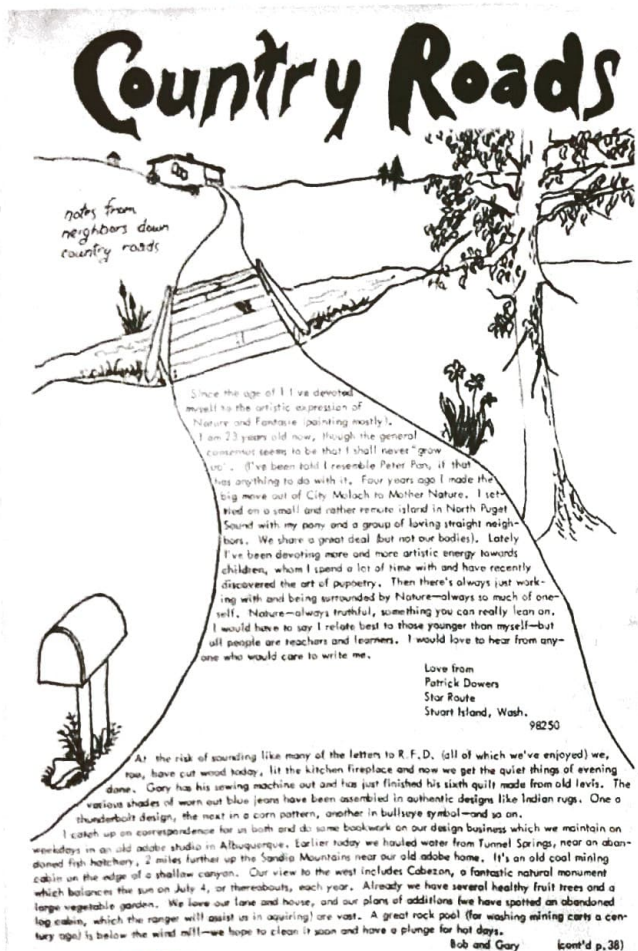 Country Roads
notes from
neighbors down
country roads
Since the age of 11 I've devoted
myself to the artistic expression of
Nature and Fantasie (painting mostly).
I am 23 years old now, though the general
consensus seems to be that I shall never "grow
up". (I've been told I resemble Peter Pan, if that
has anything to do with it. Four years ago I made the
big move out of City Moloch to Mother Nature. I set-
tled on a small and rather remote island in North Puget
Sound with my pony and a group of loving straight neigh-
bors. We share a great deal (but not our bodies). Lately
I've been devoting more and more artistic energy towards
children, whom I spend a lot of time with and have recently
discovered the art of pupoetry. Then there's always just work-
ing with and being surrounded by Nature—always so much of one-
self. Nature—always truthful, something you can really lean on.
I would have to say I relate best to those younger than myself—but
all people are teachers and learners. I would love to hear from any-
one who would care to write me.
Love from
Patrick Dowers
Star Route
Stuart Island, Wash.
98250
At the risk of sounding like many of the letters to R.F.D. (all of which we've enjoyed) we,
too, have cut wood today, lit the kitchen fireplace and now we get the quiet things of evening
done. Gary has his sewing machine out and has just finished his sixth quilt made from old levis. The
various shades of worn out blue jeans have been assembled in authentic designs like Indian rugs. One a
thunderbolt design, the next in a corn pattern, another in bullseye symbol—and so on.
I catch up on correspondence for us both and do some bookwork on our design business which we maintain on
weekdays in an old adobe studio in Albuquerque. Earlier today we hauled water from Tunnel Springs, near an aban-
doned fish hatchery, 2 miles further up the Sandia Mountains near our old adobe home. It's an old coal mining
cabin on the edge of a shallow canyon. Our view to the west includes Cabezon, a fantastic natural monument
which balances the sun on July 4, or thereabouts, each year. Already we have several healthy fruit trees and a
large vegetable garden. We love our land and house, and our plans of additions (we have spotted an abandoned
log cabin, which the ranger will assist us in aquiring) are vast. A great rock pool (for washing mining carts a cen-
tury ago) is below the wind mill—we hope to clean it soon and have a plunge for hot days.
Bob and Gary (cont'd p.38)